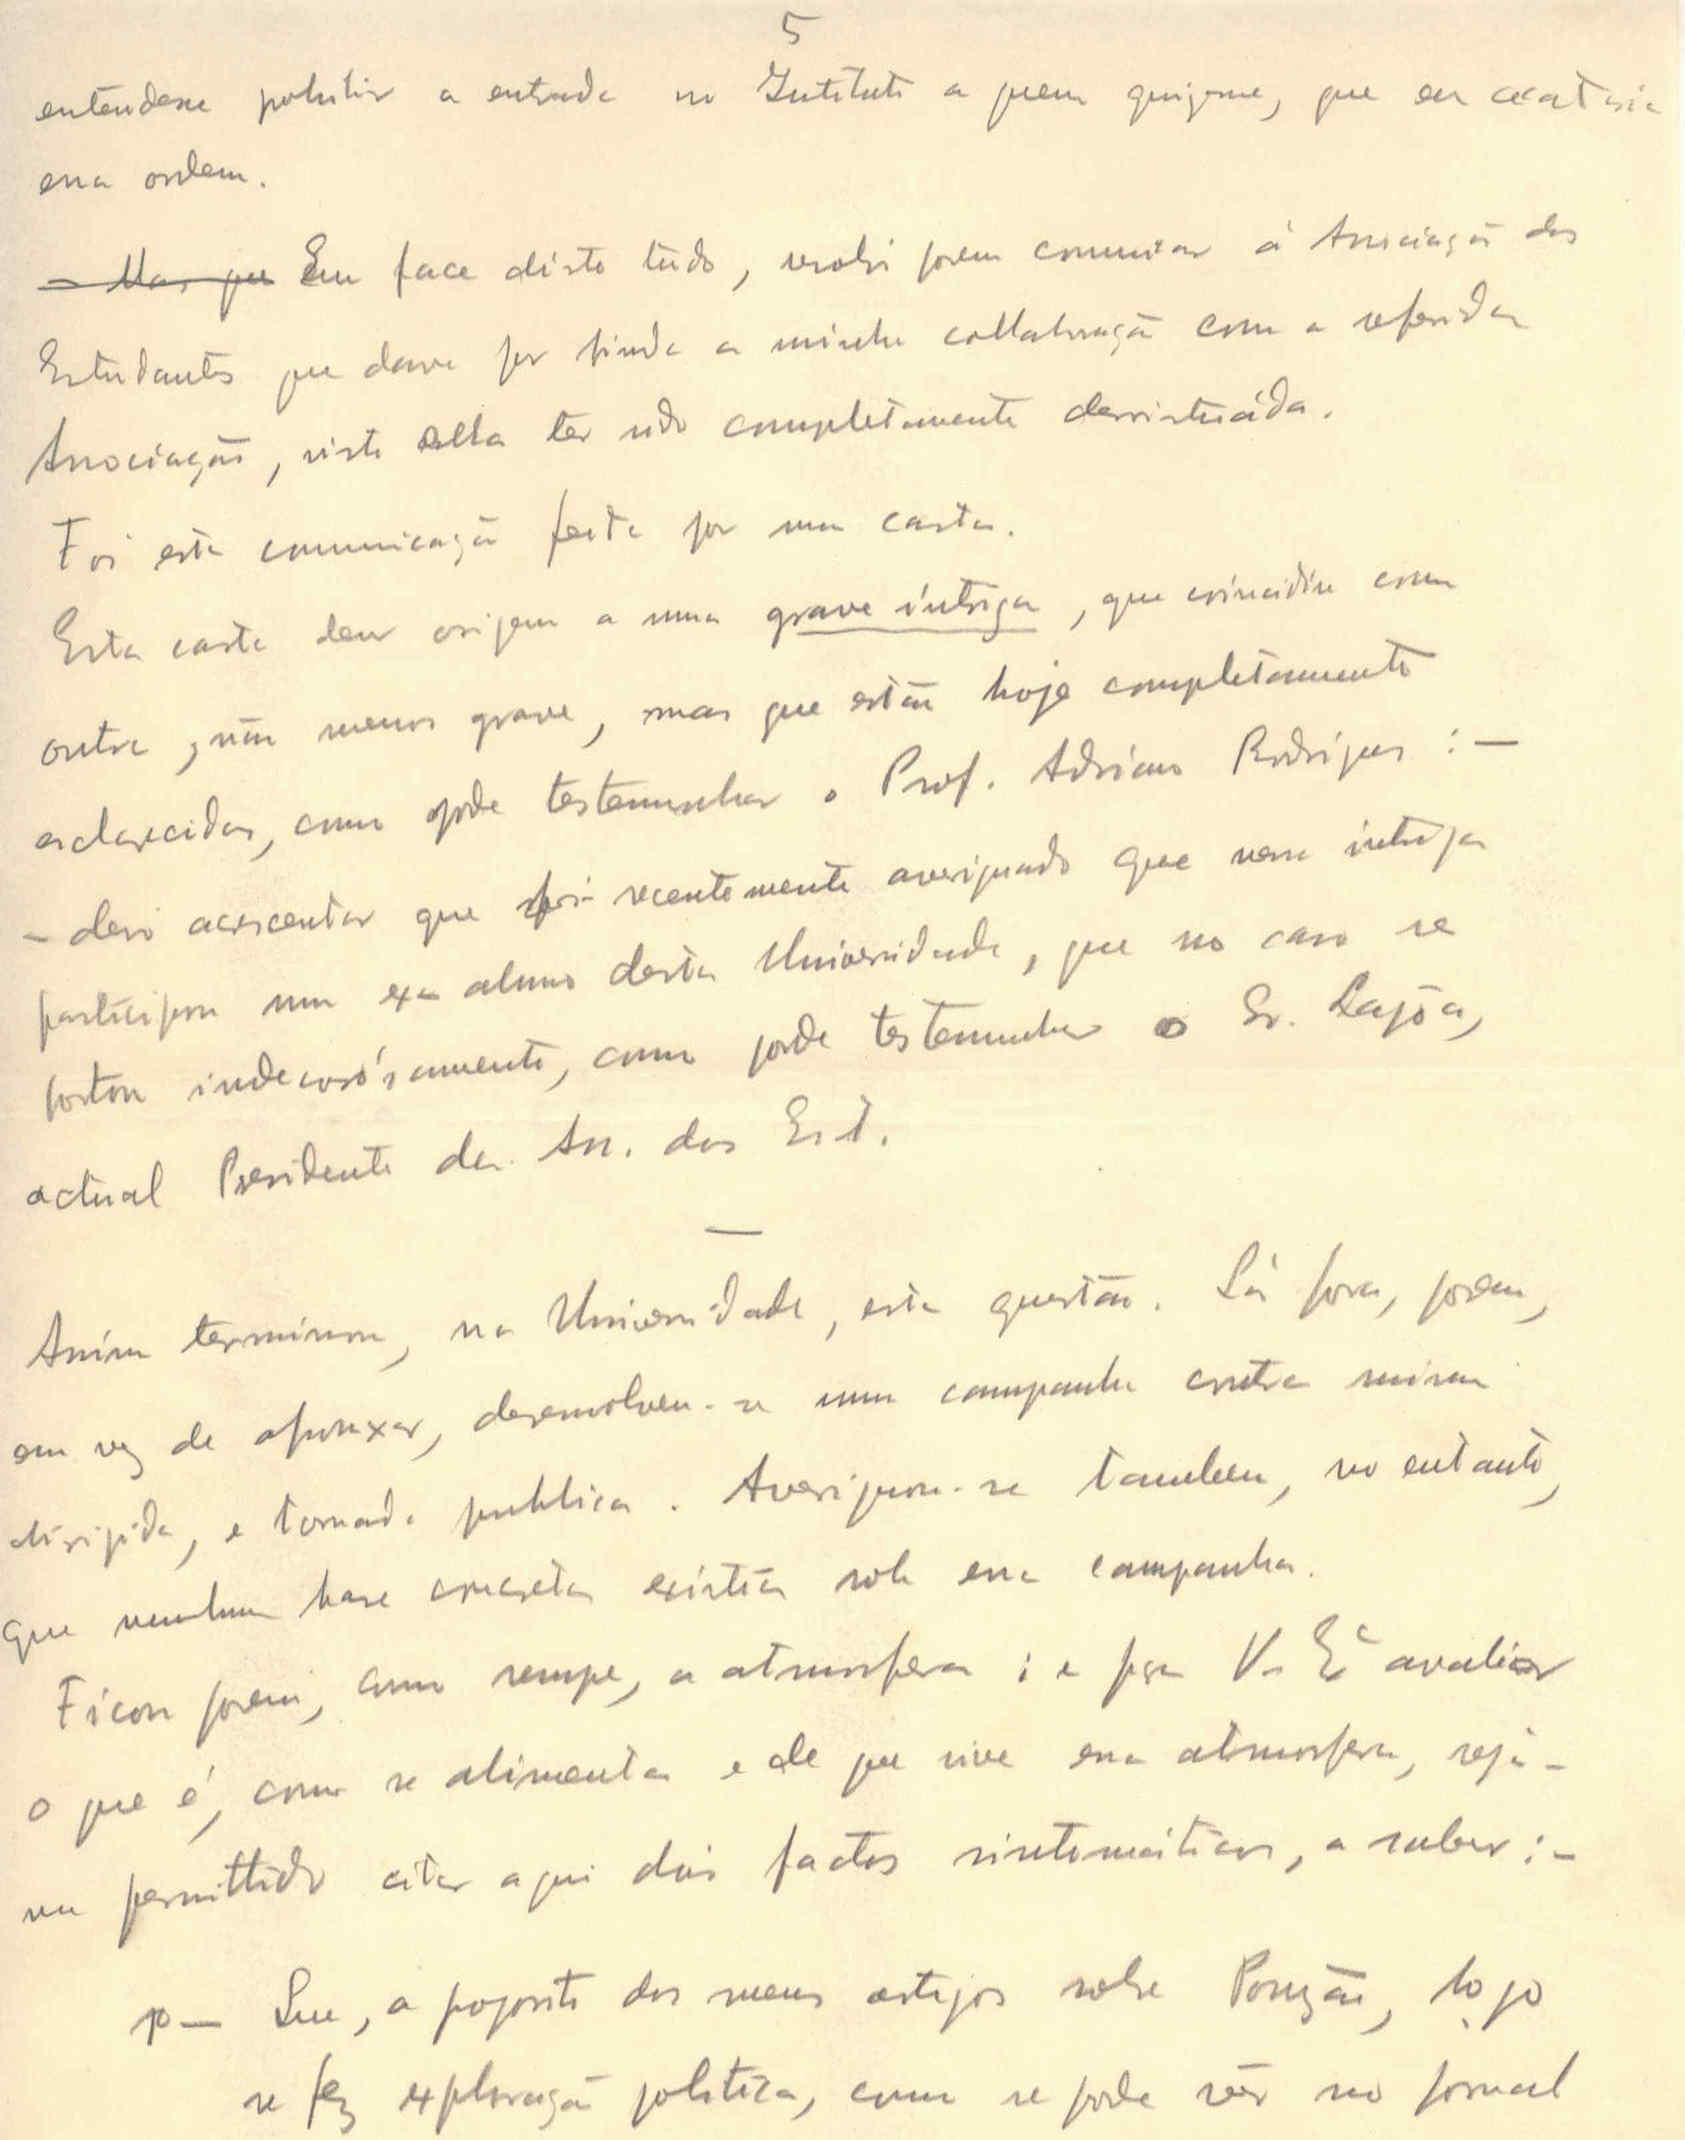 5
entendesse prohibir a entrada no Instituto a quem quizesse, que eu acataria
essa ordem.
- Mas que Em face disto tudo, resolvi porem comunicar á Associação dos
Estudantes que dava por finda a minha collaboração com a referida
Associação, visto ella ter sido completamente desvirtuáda.
Foi esta comunicação feita por uma carta.
Esta carta deu origem a uma grave intriga, que coincidiu com
outra, não menos grave, mas que estão hoje completamente
esclarecidas, como pode testemunhar o Prof. Adriano Rodrigues :—
- devo acrescentar que foi recentemente averiguado que nessa intriga
participou um ex-aluno desta Universidade, que no caso se
portou indecorósamente, como pode testemunhar o Sr. Lajôa,
actual Presidente da Ass. dos Est.
—
Assim terminou, na Universidade, esta questão. Lá fora, porem,
em vez de afrouxar, desenvolveu-se uma campanha contra mim
dirigida, e tornada publica. Averiguou-se tambem, no entanto,
que nenhuma base concreta existia sob essa campanha.
Ficou porem, como sempre, a atmosfera ; e para V. Exc avaliar
o que é, como se alimenta e de que vive essa atmosfera, seja-
me permittido citar aqui dois factos sintomáticos, a saber :-
1º— Que, a proposito dos meus artigos sobre Ponção, logo
se fez exploração politica, como se pode vêr no jornal